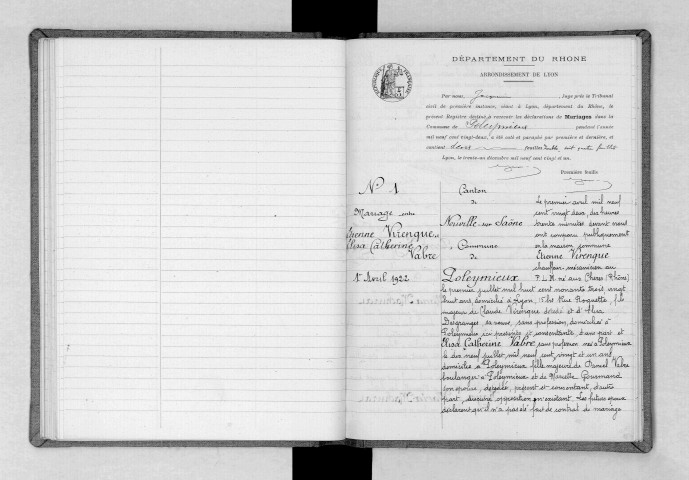 DÉPARTEMENT DU RHONE
ARRONDISSEMENT DE LYON
Par nous, juge près le Tribunal
civil de première instance, séant à Lyon, département du Rhône, le
présent Registre destiné à recevoir les déclarations de Mariages dans la
Commune de Poleymieux pendant l'année
mil neuf cent vingt-deux, a été coté et paraphé par première et dernière, et
contient deux feuilles
Lyon, le trente-un décembre mil neuf cent vingt et un.
Première feuille
N° 1
Mariage entre
Etienne Virenque et
Elisa Catherine
Vabre
1er Avril 1922
Canton
de
Neuville-sur-Saône
Commune
de
Poleymieux
Le premier avril mil neuf
cent vingt deux, dix heures
trente minutes devant nous
ont comparu publiquement
en la maison commune
Etienne Virenque
chauffeur mécanicien au
P.L.M. né aux Chères (Rhône)
le premier juillet mil huit cent nonante trois, vingt
huit ans, domicilié à Lyon, Rue Roquette, fils
majeur de Claude Virenque décédé et d'
Desgranges sa veuve, sans profession, domiciliée à
Poleymieux ici présente et consentante, d'une part et
Elisa Catherine Vabre sans profession née à Poleymieux
le dix neuf juillet mil neuf cent, vingt et un ans,
domiciliée à Poleymieux fille majeure de Vabre
boulanger à Poleymieux et de
son épouse, décédée, présent et consentant, d'autre
part, aucune opposition n'existant. Les futurs époux
déclarent qu'il n'a pas été fait de contrat de mariage